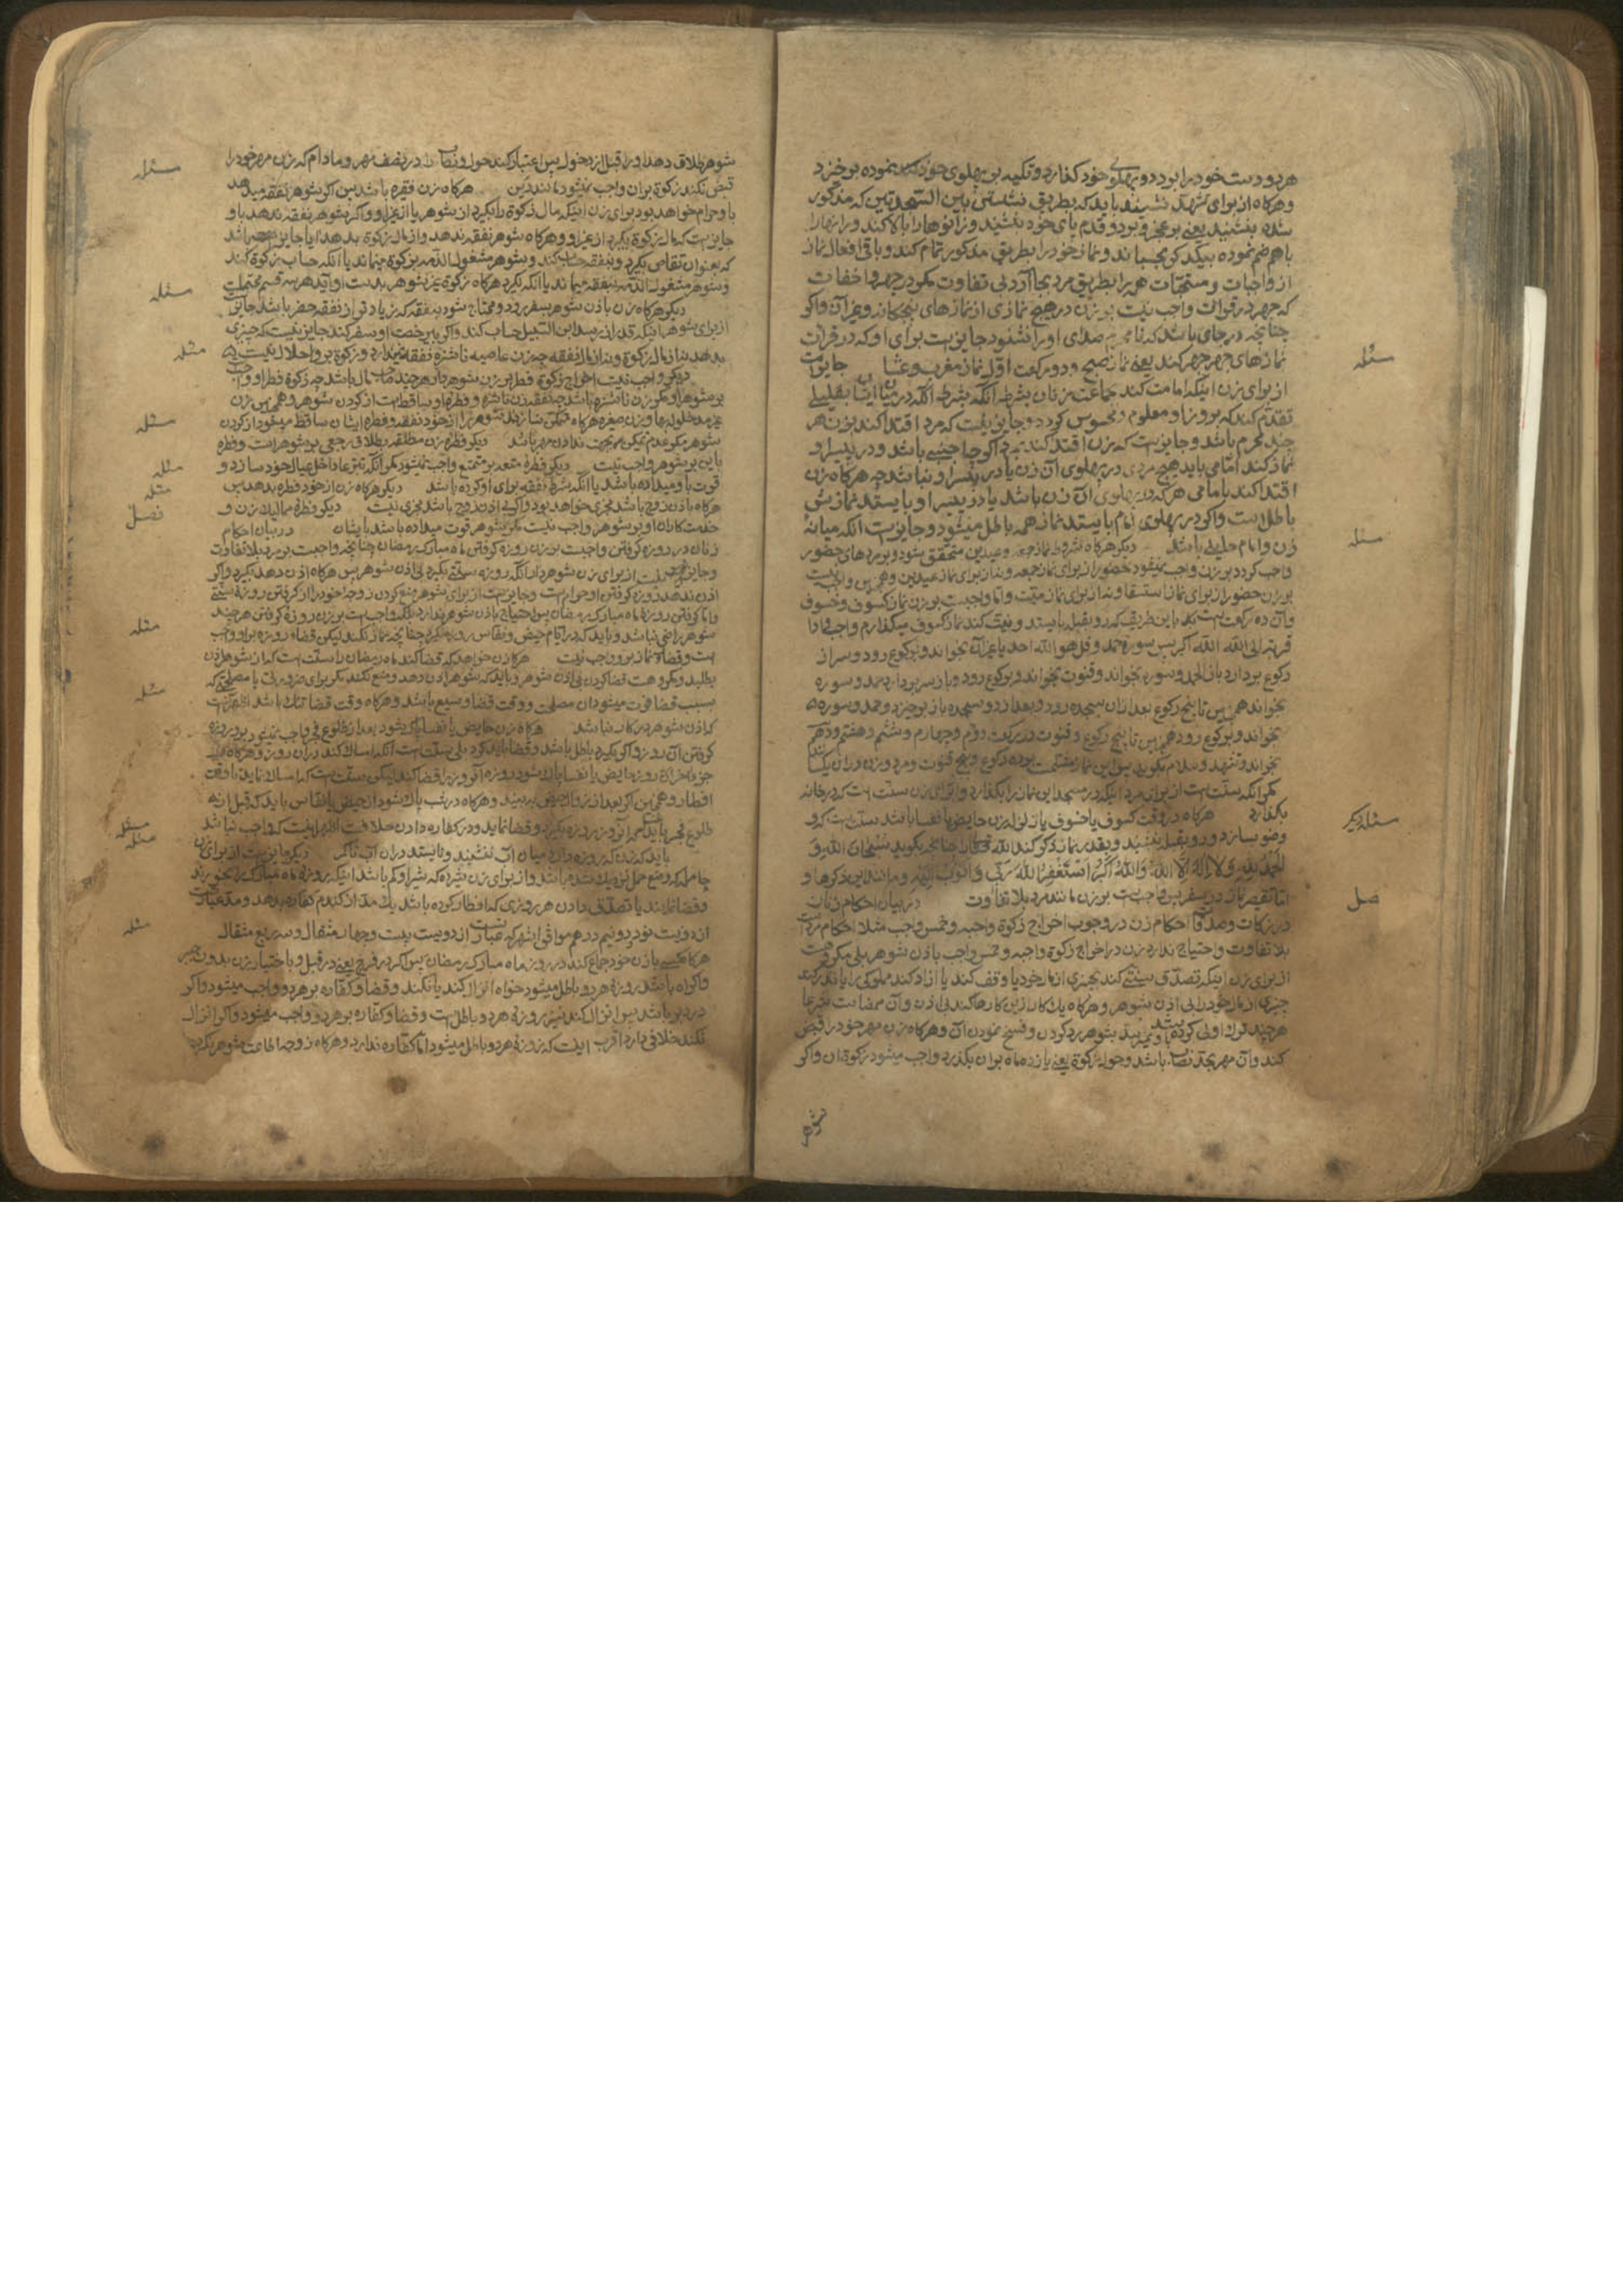 هر دو دست خود را بر دو پهلوی خود گذارد و تکیه بر پهلوی خود نموده بر خیزد
و هرکاه از برای تشهد نشیند باید که بطریق نشستن بین السجدتین که مذکور
شده بنشیند یعنی بر عجز و بر دو قدم پای خود بنشیند و زانوها را بالا کند و رانها را
باهم ضم نموده بیکدیکر بچسباند و نماز خود را بطریق مذکور تمام کند و باقی افعال نماز
از واجبات و مستحبات همه را بطریق مرد بجا آرد بی تفاوت مکر در جهر و اخفات
که جهر در قراءت واجب نیست بر زن در هیچ نمازی از نمازهای پنجکانه و غیر آن و اکر
چنانچه در جای باشد که نامحرم صدای او را نشنود جایز است برای او که در قراءت
نمازهای جهر جهر کند یعنی نماز صبح و دو رکعت اول نماز مغرب و عشا جایز است
از برای زن اینکه امامت کند جماعت زنان بشرط آنکه در میان ایشان بقلیلی
تقدم کند که بروز او معلوم و محسوس کردد و جایز نیست که مرد اقتدا کند بزن هر
چند محرم باشد و جایز است که زن اقتدا کند بمرد اکرچه اجنبی باشد و در پسر او
نماز کند اما می باید هیچ مردی در پهلوی آن زن یا در پسر او نباشد چه هرکاه زن
اقتدا کند بامامی هر که در پهلوی آن زن باشد یا در پسر او بایستد نمازش
باطل است و اکر در پهلوی امام بایستد نماز همه باطل میشود و جایز است آنکه میانه
زن و امام حایلی باشد دیکر هرکاه شروط نماز جمعه و عیدین متحقق شود و بر مردهای حضور
واجب کردد بر زن واجب نمیشود حضور از برای نماز جمعه و نه از برای نماز عیدین و همچنین واجب نیست
بر زن حضور از برای نماز استسقا و نه از برای نماز میت و اما واجبست بر زن نماز کسوف و خسوف
و آن ده رکعت است باین طریق که رو بقبله بایستد و نیت کند نماز کسوف میکذارم واجب ادا
قربة الی الله الله اکبر پس سوره حمد و قل هو الله احد یا غیر آن بخواند و برکوع رود و سر از
رکوع بردارد باز الحمد و سوره بخواند و قنوت بخواند و برکوع رود و باز سر بردارد و حمد و سوره
بخواند همچنین تا پنج رکوع بعد از آن بسجده رود و بعد از دو سجده باز بر خیزد و حمد و سوره
بخواند و برکوع رود همچنین تا پنج رکوع و قنوت در رکعت دوم و چهارم و ششم و هشتم و دهم
بخواند و تشهد و سلام بکوید پس این نماز مشتملست بر ده رکوع و پنج قنوت و مرد و زن در آن یکسانند
مکر آنکه سنت است از برای مرد اینکه در مسجد این نماز را بکذارد و از برای زن سنت است که در خانه
بکذارد هرکاه در وقت کسوف یا خسوف یا زلزله زن حایض یا نفسا باشد سنت است که
وضو سازد و رو بقبله بنشیند و بقدر نماز ذکر کند الله تعالی را چنانچه بکوید سُبْحَانَ اللهِ وَ
الحَمْدُ لِلّهِ وَلَا اِلهَ اِلَّا اللهُ وَاللهُ اَکْبَرُ اَسْتَغْفِرُ اللهَ رَبّی وَ اَتُوبُ اِلَیْهِ و مانند این ذکرها و
اما تقصیر نماز در سفر پس واجبست بر زن مانند مرد بلا تفاوت در بیان احکام زنان
در زکات و صدقه احکام زن در وجوب اخراج زکوة واجبه و خمس واجب مثل احکام مرد است
بلا تفاوت و احتیاج ندارد زن در اخراج زکوة واجبه و خمس واجب باذن شوهر بلی مکروهست
از برای زن اینکه تصدق سنتی کند بچیزی از مال خود یا وقف کند یا آزاد کند مملوکی را یا نذر کند
چیزی از مال خود را بی اذن شوهر و هرکاه یک کار ازین کارها کند بی اذن و آن ممضاست شرعا
هرچند ترک اولی کرده باشد و نمیرسد شوهر رد کردن و فسخ نمودن آن و هرکاه زن مهر خود را قبض
کند و آن مهر بحد نصاب باشد و حول زکوة یعنی یازده ماه بر آن بکذرد واجب میشود زکوة آن و اکر
شوهر
مسئله
مسئله
مسئله دیکر
فصل
شوهر طلاق دهد او را قبل از دخول پس اعتبار کند حول و نصاب را در نصف مهر و مادام که زن مهر خود را
قبض نکند زکوة بر آن واجب نمیشود مانند دین هرکاه زن فقیره باشد پس اکر شوهر نفقه میدهد
باو حرام خواهد بود برای زن اینکه مال زکوة را بکیرد از شوهر یا از غیر او و اکر شوهر نفقه ندهد باو
جایز است که مال زکوة بکیرد از غیر او و هرکاه شوهر نفقه ندهد و از مال زکوة بدهد آیا جایز
که بعنوان تقاص بکیرد و بنفقه حساب کند و شوهر مشغول الذمه بزکوة بماند یا آنکه حساب زکوة کند
و شوهر مشغول الذمه بنفقه بماند یا آنکه بکیرد هرکاه زکوة غیر شوهر بدست او آید هر سه قسم محتملست
دیکر هرکاه زن باذن شوهر بسفر رود و محتاج شود بنفقه که زیادتر از نفقه حضر باشد جایز
از برای شوهر اینکه قدر زاید را از سهم ابن السبیل حساب کند و اکر بی رخصت او سفر کند جایز نیست که چیزی
بدهد نه از مال زکوة و نه از مال نفقه چه زن عاصیه ناشزه نفقه ندارد و زکوة بر او حلال نیست
دیکر واجب نیست اخراج زکوة فطر بر زن شوهردار هرچند صاحب مال باشد چه زکوة فطر او واجب
بر شوهر اوست مکر زن ناشزه باشد چه نفقه زن ناشزه و فطره او ساقط است از کردن شوهر و همچنین زن
غیر مدخوله بها و زن صغیره هرکاه متمکن نسازند شوهر را از خود نفقه و فطره ایشان ساقط میشود از کردن
شوهر مکر عدم تمکین بجهت ندادن مهر باشد دیکر فطره زن مطلقه بطلاق رجعی بر شوهر است و فطره
باین بر شوهر واجب نیست دیکر فطره متعه بر متمتع واجب نمیشود مکر آنکه تبرعا داخل عیال خود سازد و
قوت باو میداده باشد یا آنکه شرط نفقه برای او کرده باشد دیکر هرکاه زن از خود فطره بدهد پس
هرکاه باذن زوج باشد مجزی خواهد بود و اکر بی اذن زوج باشد مجزی نیست دیکر فطره ممالیک زن و
خدمتکاران او بر شوهر واجب نیست مکر شوهر قوت میداده باشد بایشان در بیان احکام
زنان در روزه کرفتن واجبست بر زن روزه کرفتن ماه مبارک رمضان چنانچه واجبست بر مرد بلا تفاوت
و جایز نیست از برای زن شوهردار آنکه روزه سنتی بکیرد بی اذن شوهر پس هرکاه اذن دهد بکیرد و اکر
اذن ندهد روزه کرفتن او حرام است و جایز است از برای شوهر منع کردن زوجه خود را از کرفتن روزه سنتی
و اما کرفتن روزه ماه مبارک رمضان پس احتیاج باذن شوهر ندارد بلکه واجب است بر زن روزه کرفتن هرچند
شوهر راضی نباشد و باید که در ایام حیض و نفاس روزه نکیرد چنانچه نماز نکند لیکن قضاء روزه بر او واجب
است و قضاء نماز بر او واجب نیست هرکاه زن خواهد که قضا کند ماه رمضان را سنت است که از شوهر اذن
بطلبد و مکروهست قضا کردن بی اذن شوهر و باید که شوهر اذن دهد و منع نکند مکر برای ضرورتی یا مصلحتی که
بسبب قضا فوت میشود آن مصلحت و وقت قضا وسیع باشد و هرکاه وقت قضا تنک باشد
که اذن شوهر در کار نباشد هرکاه زن حایض یا نفسا پاک شود بعد از طلوع فجر واجب نمیشود بر او روزه
کرفتن آن روز و اکر بکیرد باطل باشد و قضا باید کرد بلی سنت است آنکه امساک کند در آن روز و هرکاه
جزو آخر روز حایض یا نفسا شود روزه آنروز را قضا کند لیکن سنت است که امساک نماید تا وقت
افطار و همچنین اکر بعد از زوال حیض به بیند و هرکاه در شب پاک شود از حیض یا نفاس باید که قبل از
طلوع فجر غسل کند آنروز روزه بکیرد و قضا نماید و در کفاره دادن خلافست اظهر اینست که واجب نباشد
باید که زن که روزه دارد میان آب ننشیند و نایستد در آن آب تا کمر دیکر جایز است از برای زن
حامله که وضع حمل نزدیک شده باشد و از برای زن شیرده که شیر او کم باشد اینکه روزه ماه مبارک را بخورند
و قضا نمایند با تصدق دادن هر روزی که افطار کرده باشد یک مد از کندم کفاره بدهد و مد عبارتست
از دویست و نود و دو نیم درهم موافق اشهر که عبارتست از دویست بیست و چهار مثقال و سه ربع مثقال
هرکاه کسی با زن خود جماع کند در روز ماه مبارک رمضان پس اکر در فرج یعنی در قبل و باختیار زن بدون جبر
و اکراه باشد روزه هر دو باطل میشود خواه انزال کند یا نکند و قضا و کفاره بر هر دو واجب میشود و اکر
در دبر باشد پس انزال کند نیز روزه هر دو باطل است و قضا و کفاره بر هر دو واجب میشود و اکر انزال
نکند خلافی دارد اقرب اینست که روزه هر دو باطل میشود اما کفاره ندارد و هرکاه زوجه اطاعت شوهر نکرده
مسئله
مسئله
مسئله
مسئله
مسئله
مسئله
فصل
مسئله
مسئله
مسئله
مسئله
مسئله